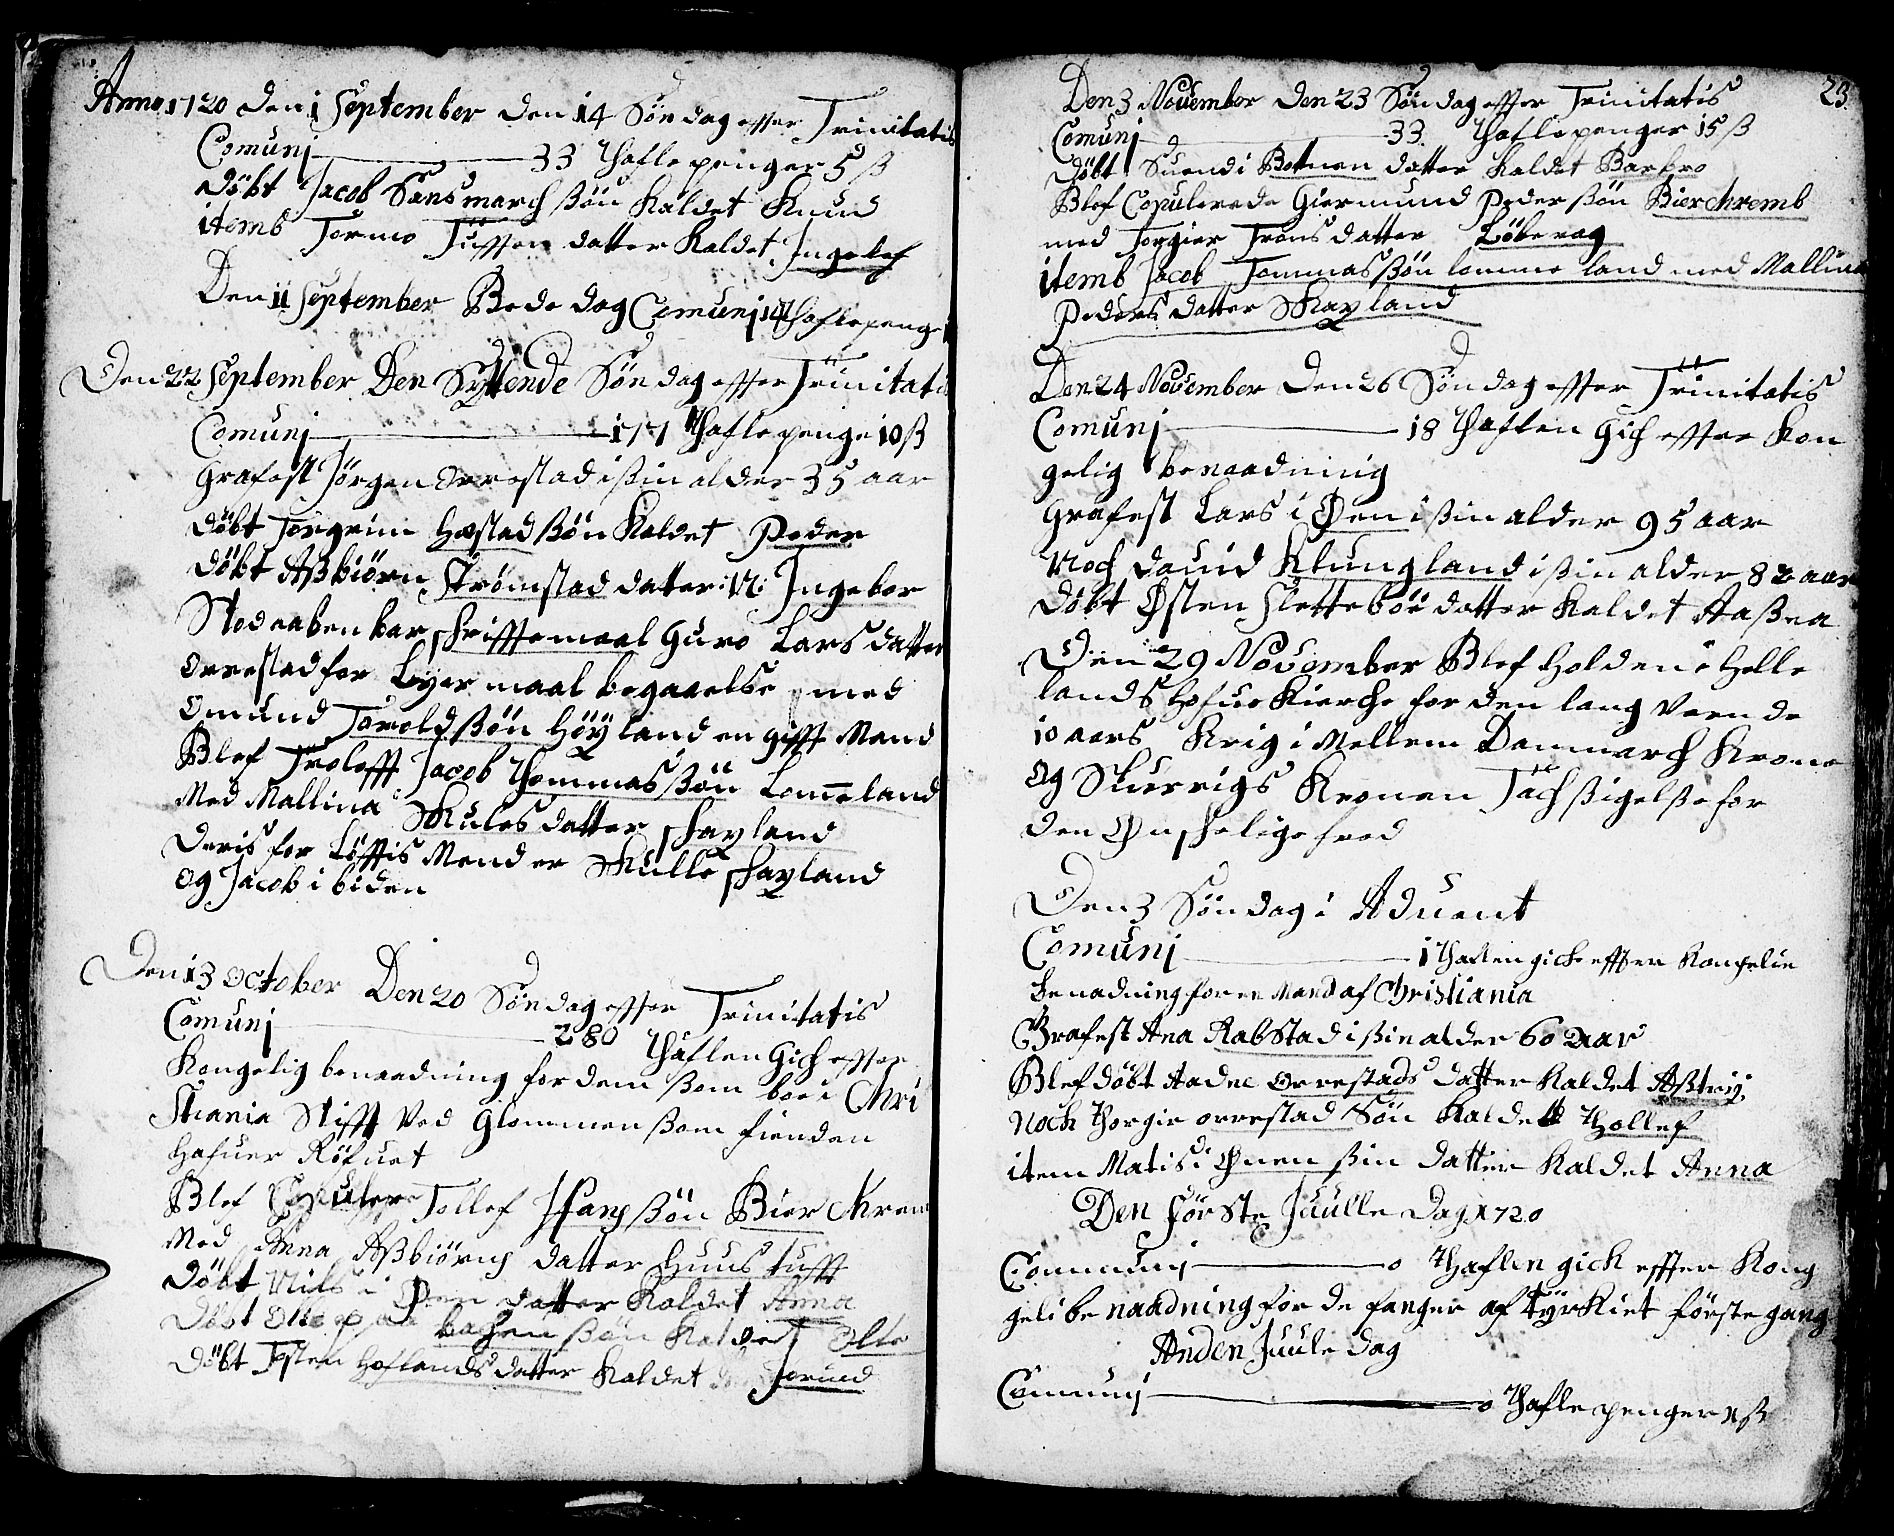 Anno 1720 den 1 September den 14 Söndag effter Trinitatis
Comunj 33 Thaflepenger 5 ß
döbt Jacob Sansmarch ßön Kaldet Knud
itemb Tormo Tüffsen datter Kaldet Ingelef
Den 11 September Bededag Comunj Thaflepenge
Den 22 September Den Syttende Söndag effter Trinitatis
Comunj 177 Thaflepenge 10 ß
Grafest Jörgen Orrestad i ßin alder 35 aar
döbt Torgrim Hæstad ßön Kaldet Peder
döbt Aßbiörn Strömstad datter :N: Ingebor
Stod aabenbar schrifftemaal Guro Larsdatter
Orrestad for Leyermaal begaaelse med
Omund Torolds ßön Höyland en gifft Mand
Blef Trolofft Jacob Thommas ßön Lomeland
Med Mallina Skulesdatter schayland
deris forLöfftis Mend er Skulle schayland
og Jacob ibiden
Den 13 October Den 20 Söndag effter Trinitatis
Comunj 280 Thaflen Gich effter
Kongelig benaadning for dem ßom boe i Chri
stiania Stifft ved Glommen ßom fienden
hafuer Röfuet
Blef Tollef Hans ßön Bierchrem
Med Anna Aßbiörns datter Huustufft
Döbt Nils i Öen datter Kaldet Anna
Döbt Olle paa bachen ßön Kaldet Olle
Döbt Tosten Hoflands datter Kaldet Jorund
23
Den 3 November Den 23 Söndag effter Trinitatis
Comunj 33 Thaflepenger 15 ß
döbt Suend i Botnen datter Kaldet Barbro
Blef Copulerede Giermund Peder ßön Bierchremb
med Torgier Tronsdatter Löberag
itemb Jacob Tommas ßön lommeland med Mallina
Peders datter Skayland
Den 24 November Den 26 Söndag effter Trinitatis
Comunj 18 Thaflen Gich effter Kon
gelig benaadning
Grafest Lars i Öen i ßin alder 95 aar
Noch Dauid Klungland i ßin alder 82 aar
döbt Östen Sletteböe datter Kaldet Aaßea
Den 29 November Blef Holden i Helle
lands Hofue Kierche for den lang varende
10 aars Krig i Mellem Danmarch Krone
og Suerrigs Kronen Tachsigelße for
den Ønschelige fred
Den 3 Söndag i Aduent
Comunj 1 Thaflen gich effter Kongelie
benadning for en Mand af Christiania
Grafest Ana Rabstad i ßin alder 60 aar
Blef döbt Aadne Orrestads datter Kaldet Aßtrij
Noch Thorgie orrestad Sön Kaldett Thollef
item Matis i Önen ßin datter Kaldet Anna
Den förste Juulle Dag 1720
Communj 0 Thaflen gick effter Kong
geli benaadning for de fanger af Tyrkiet förste gang
Anden Juule dag
Comunj 0 Thaflepenger ß